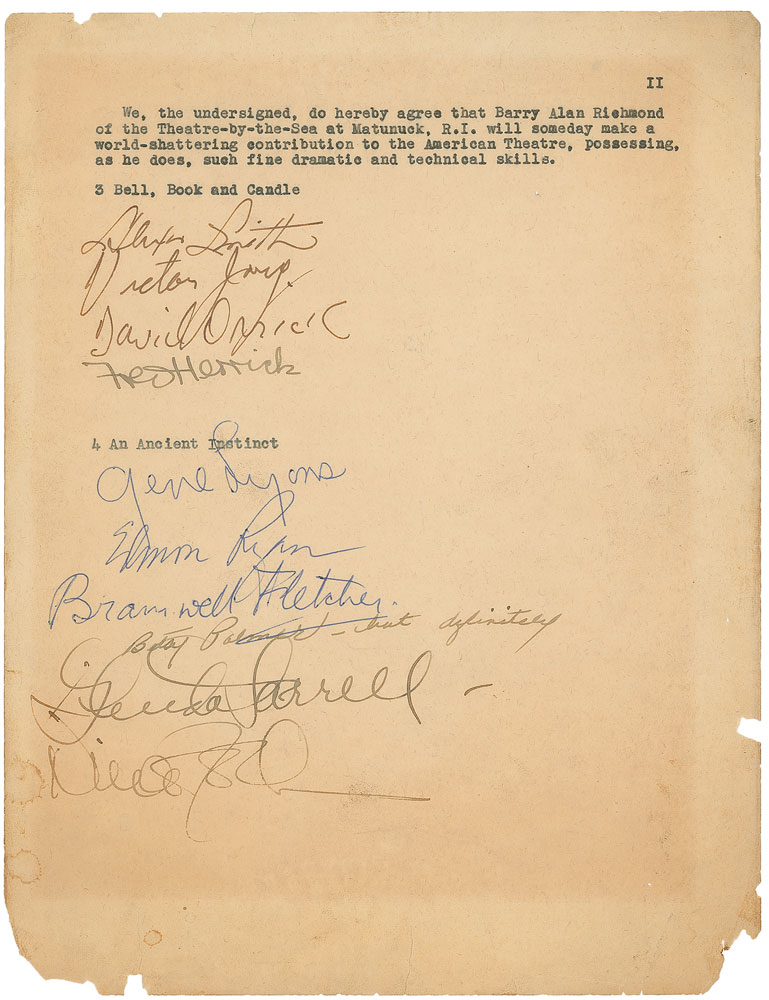 II
We, the undersigned, do hereby agree that Barry Alan Richmond
of the Theatre-by-the-Sea at Matunuck, R.I. will someday make a
world-shattering contribution to the American Theatre, possessing,
as he does, such fine dramatic and technical skills.
3 Bell, Book and Candle
Alexis Smith
Victor Jory
David Orrick
Fred Herrick
4 An Ancient Instinct
Gene Lyons
Edmon Ryan
Bramwell Fletcher.
Betsy Palmer - but definitely
Glenda Farrell -